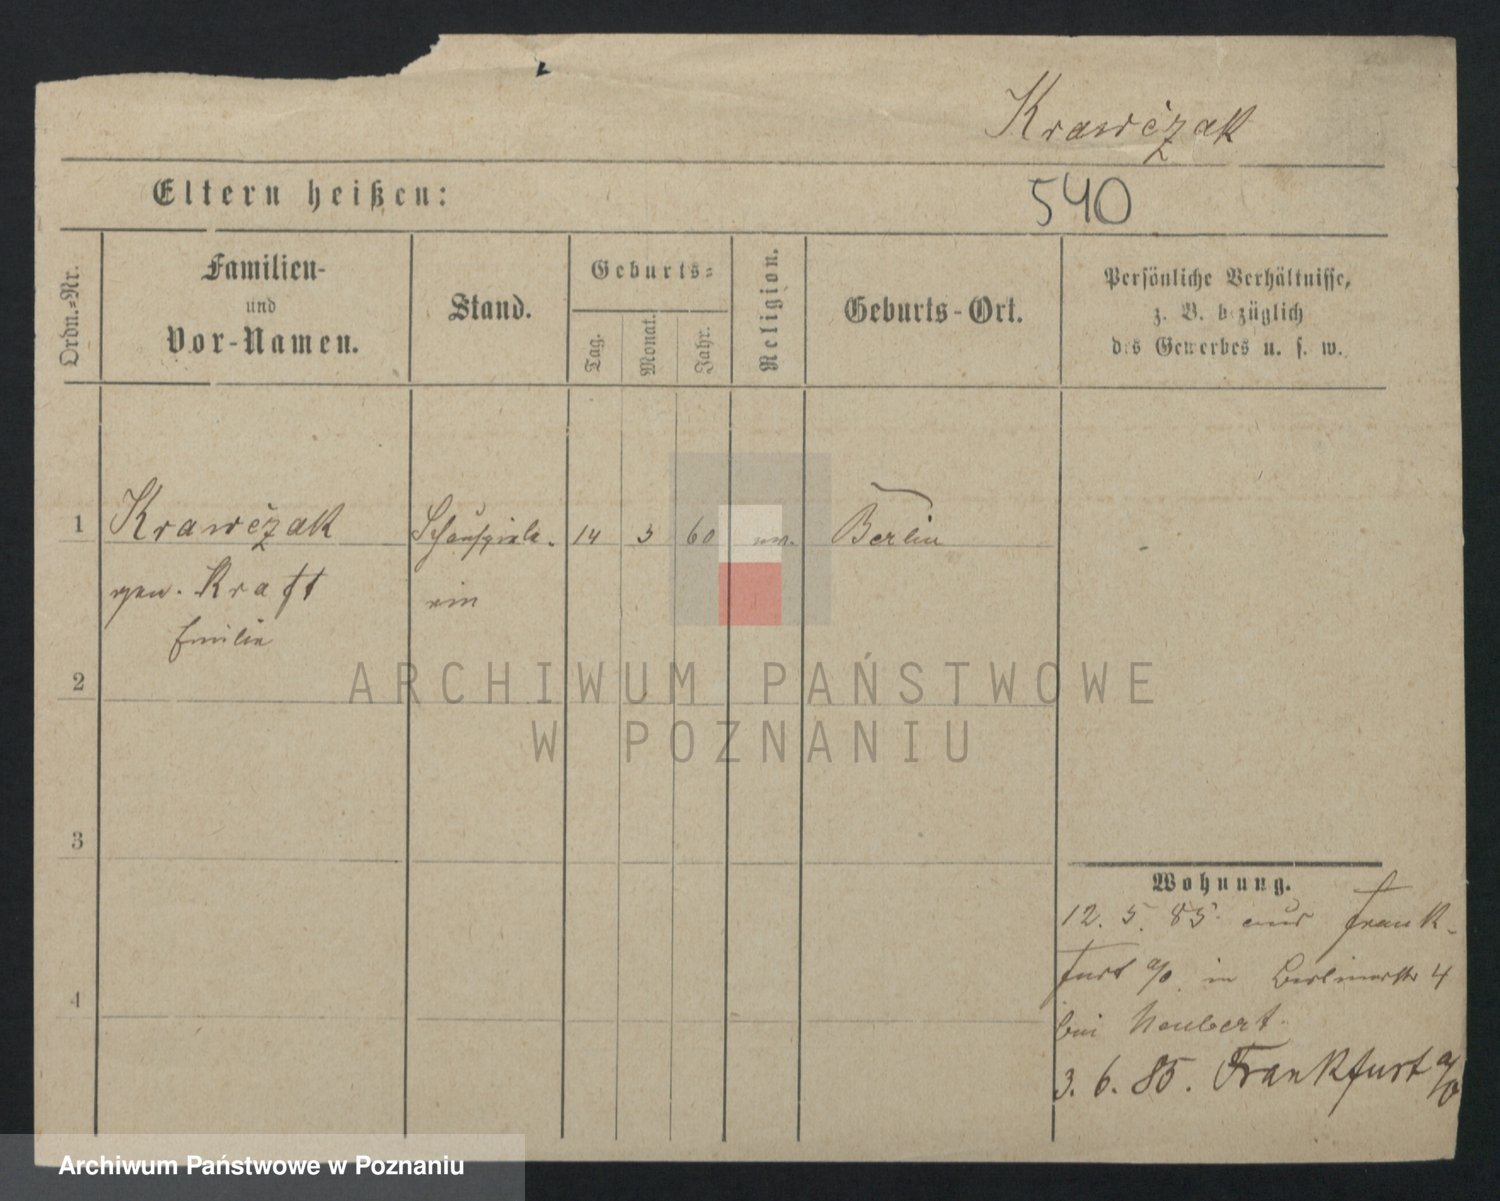 Krawčzak
Eltern heißen:
540
Ordn.-Nr.
Familien-
und
Vor-Namen.
Stand.
Geburts-
Tag.
Monat.
Jahr.
Religion.
Geburts-Ort.
Persönliche Verhältnisse,
z. B. bezüglich
des Gewerbes u. s. w.
1
Krawčzak
Schauspiele-
14
3
60
ev.
Berlin
gen. Kraft
rin
Emilie
2
ARCHIWUM PAŃSTWOWE
W POZNANIU
3
Wohnung.
12. 5. 85 aus Frank-
furt a/o. in Berlinerstr 4
4
bei Neubert.
3. 6. 85. Frankfurt a/o
Archiwum Państwowe w Poznaniu